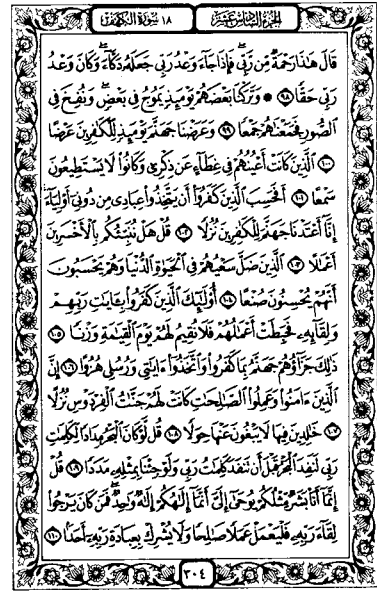 الجزء السادس عشر ١٨ سورة الكهف
قَالَ هَٰذَا رَحْمَةٌ مِّن رَّبِّي ۖ فَإِذَا جَآءَ وَعْدُ رَبِّي جَعَلَهُۥ دَكَّآءَ ۖ وَكَانَ وَعْدُ
رَبِّي حَقًّا ٩٨ ۞ وَتَرَكْنَا بَعْضَهُمْ يَوْمَئِذٍ يَمُوجُ فِي بَعْضٍ ۖ وَنُفِخَ فِي
ٱلصُّورِ فَجَمَعْنَٰهُمْ جَمْعًا ٩٩ وَعَرَضْنَا جَهَنَّمَ يَوْمَئِذٍ لِّلْكَٰفِرِينَ عَرْضًا
١٠٠ ٱلَّذِينَ كَانَتْ أَعْيُنُهُمْ فِي غِطَآءٍ عَن ذِكْرِي وَكَانُوا۟ لَا يَسْتَطِيعُونَ
سَمْعًا ١٠١ أَفَحَسِبَ ٱلَّذِينَ كَفَرُوٓا۟ أَن يَتَّخِذُوا۟ عِبَادِي مِن دُونِيٓ أَوْلِيَآءَ ۚ
إِنَّآ أَعْتَدْنَا جَهَنَّمَ لِلْكَٰفِرِينَ نُزُلًا ١٠٢ قُلْ هَلْ نُنَبِّئُكُم بِٱلْأَخْسَرِينَ
أَعْمَٰلًا ١٠٣ ٱلَّذِينَ ضَلَّ سَعْيُهُمْ فِي ٱلْحَيَوٰةِ ٱلدُّنْيَا وَهُمْ يَحْسَبُونَ
أَنَّهُمْ يُحْسِنُونَ صُنْعًا ١٠٤ أُو۟لَٰٓئِكَ ٱلَّذِينَ كَفَرُوا۟ بِـَٔايَٰتِ رَبِّهِمْ
وَلِقَآئِهِۦ فَحَبِطَتْ أَعْمَٰلُهُمْ فَلَا نُقِيمُ لَهُمْ يَوْمَ ٱلْقِيَٰمَةِ وَزْنًا ١٠٥
ذَٰلِكَ جَزَآؤُهُمْ جَهَنَّمُ بِمَا كَفَرُوا۟ وَٱتَّخَذُوٓا۟ ءَايَٰتِي وَرُسُلِي هُزُوًا ١٠٦ إِنَّ
ٱلَّذِينَ ءَامَنُوا۟ وَعَمِلُوا۟ ٱلصَّٰلِحَٰتِ كَانَتْ لَهُمْ جَنَّٰتُ ٱلْفِرْدَوْسِ نُزُلًا
١٠٧ خَٰلِدِينَ فِيهَا لَا يَبْغُونَ عَنْهَا حِوَلًا ١٠٨ قُل لَّوْ كَانَ ٱلْبَحْرُ مِدَادًا لِّكَلِمَٰتِ
رَبِّي لَنَفِدَ ٱلْبَحْرُ قَبْلَ أَن تَنفَدَ كَلِمَٰتُ رَبِّي وَلَوْ جِئْنَا بِمِثْلِهِۦ مَدَدًا ١٠٩ قُلْ
إِنَّمَآ أَنَا۠ بَشَرٌ مِّثْلُكُمْ يُوحَىٰٓ إِلَيَّ أَنَّمَآ إِلَٰهُكُمْ إِلَٰهٌ وَٰحِدٌ ۖ فَمَن كَانَ يَرْجُوا۟
لِقَآءَ رَبِّهِۦ فَلْيَعْمَلْ عَمَلًا صَٰلِحًا وَلَا يُشْرِكْ بِعِبَادَةِ رَبِّهِۦٓ أَحَدًا ١١٠
٣٠٤